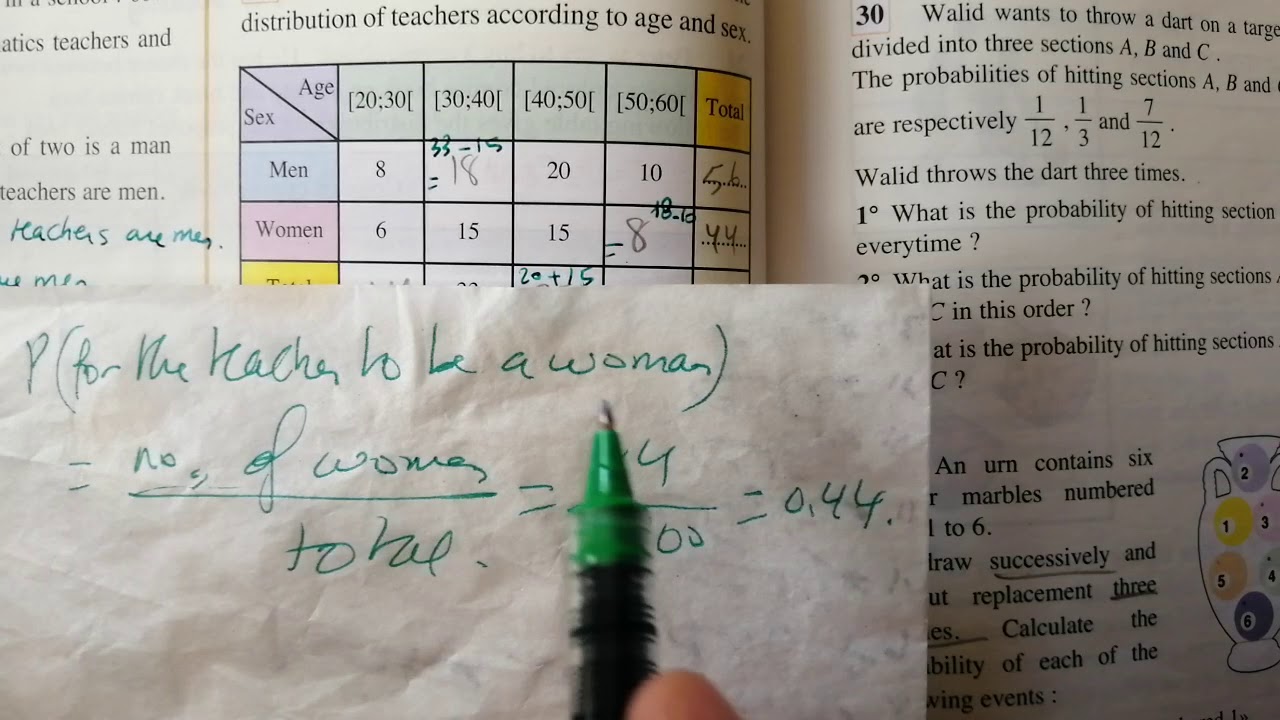 atics teachers and
of two is a man
teachers are men.
teachers are men.
men
distribution of teachers according to age and sex.
Age [20;30[ [30;40[ [40;50[ [50;60[ Total
Sex
33-15
Men 8 = 18 20 10 56
18-10
Women 6 15 15 = 8 44
20+15
P(for the teacher to be a woman)
= no. of women = 4 = 0.44.
total. 00
30 Walid wants to throw a dart on a targe
divided into three sections A, B and C.
The probabilities of hitting sections A, B and
are respectively 1/12, 1/3 and 7/12.
Walid throws the dart three times.
1° What is the probability of hitting section
everytime ?
2° What is the probability of hitting sections
C in this order ?
at is the probability of hitting sections
C ?
An urn contains six
r marbles numbered
1 to 6.
draw successively and
ut replacement three
es. Calculate the
bility of each of the
wing events :
2
1 3
5 4
6